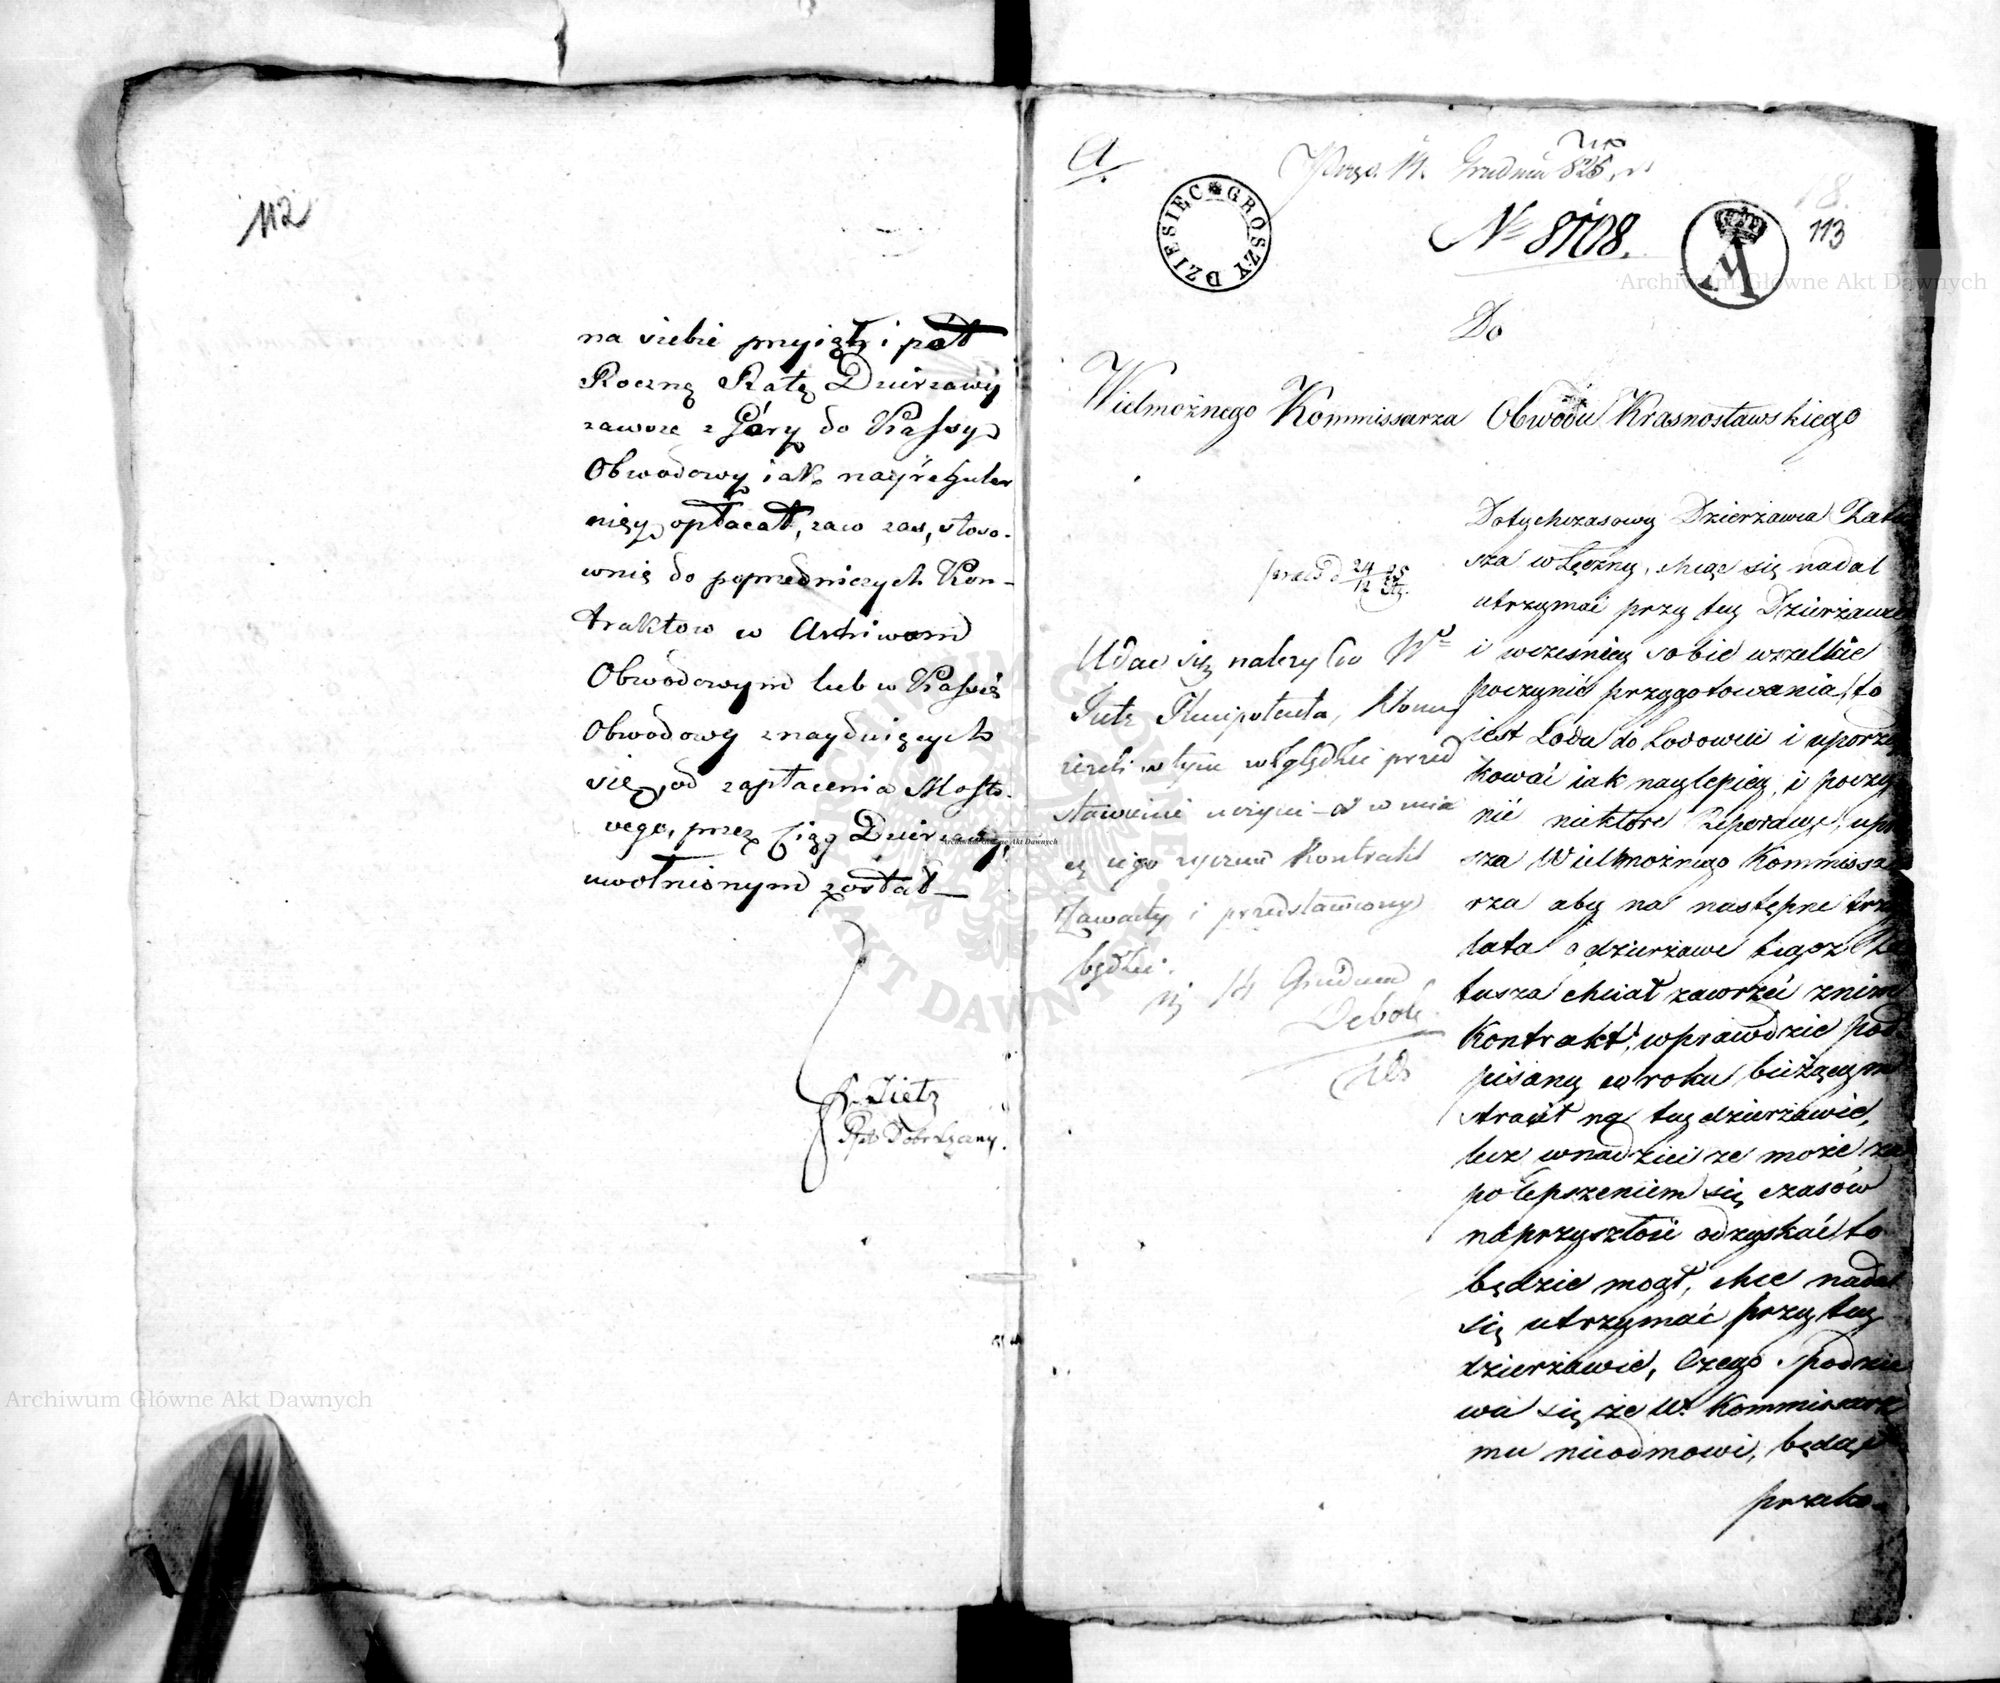 112
na siebie przyiął i pół
Roczną Ratę Dzierzawy
zawsze z Góry do Kassy
Obwodowy iak nayregular
nięy opłacał, zaco zas, stoso-
wnię do poprzedniczych Kon-
traktow w Archiwum
Obwodowym lub w Kassię
Obwodowy znayduiących
się, od zapłacenia Mosto-
vego, przez Ciąg Dzierzawy,
uwolnionym został —
F. Tietz
Plt Dobr Łęczny.
a.
14. Grudnia 825 r.
DZIESIĘC GROSZY
No 8708.
113
Do
Wielmożnego Kommissarza Obwodu Krasnostawskiego
Dotychczasowy Dzierżawca Ratu
sza w Łęczny, chcąc się nadal
utrzymać przy tey Dzierżawie
i wczesniey sobie wszelkie
poczynić przygotowania, to
jest Lodu do Lodowni i uporząd
kować iak naylepiey, i poczy
nić niektóre Reperacye, upra
sza Wielmożnego Kommissa
rza aby na następne trzy
lata o dzierżawe tegoż Ra
tusza chciał zawrzeć znim
Kontrakt, wprawdzie pod
pisany w roku bieżącym
stracił na tey dzierżawie,
lecz wnadziei ze może za
polepszeniem się czasów
naprzyszłość odzyskać to
będzie mógł, chce nadal
się utrzymać przy tey
dzierżawie, Czego spodzie
wa się że W. Kommissarz
mu nieodmowi, będąc
przeko-
24 25
12
Udac się nalezy do W
Tietz Plenipotenta, ktory
iezeli w tym względzie przed
stawienie uczyni – w mia
rę iego zyczeń Kontrakt
zawarty i przedstawiony
będzie.
14 Grudnia
Archiwum Główne Akt Dawnych
Archiwum Główne Akt Dawnych
Archiwum Główne Akt Dawnych
ARCHIWUM GŁÓWNE AKT DAWNYCH